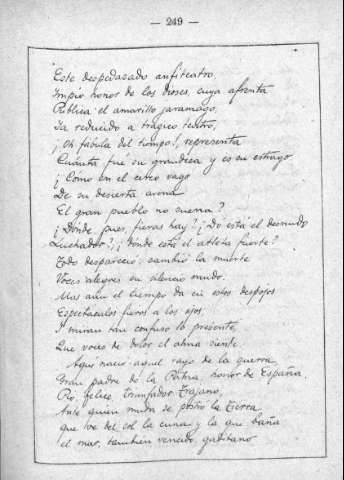 — 249 —
Este despedasado anfiteatro,
Impio honor de los dioses, cuya afrenta
Publica el amarillo jaramago,
Ya reducido a trágico teatro,
¡Oh fábula del tiempo!, representa
Cuánta fué su grandeza y es su estrago.
¿Cómo en el cerco vago
De su desierta arena
El gran pueblo no suena?
¿Dónde, pues, fieras hay? ¿Do está el desnudo
Luchador? ¿Dónde está el atleta fuerte?
Todo despareció; cambió la muerte
Voces alegres en silencio mudo.
Mas aun el tiempo da en estos despojos
Espectáculos fieros a los ojos,
I miran tan confuso lo presente,
Que voces de dolor el alma siente.
Aquí nació aquel rayo de la guerra,
Gran padre de la Patria, honor de España
Pío, felice, triunfador Trajano,
Ante quien muda se postró la tierra
que ve del sol la cuna y la que baña
el mar, también vencido, gaditano.